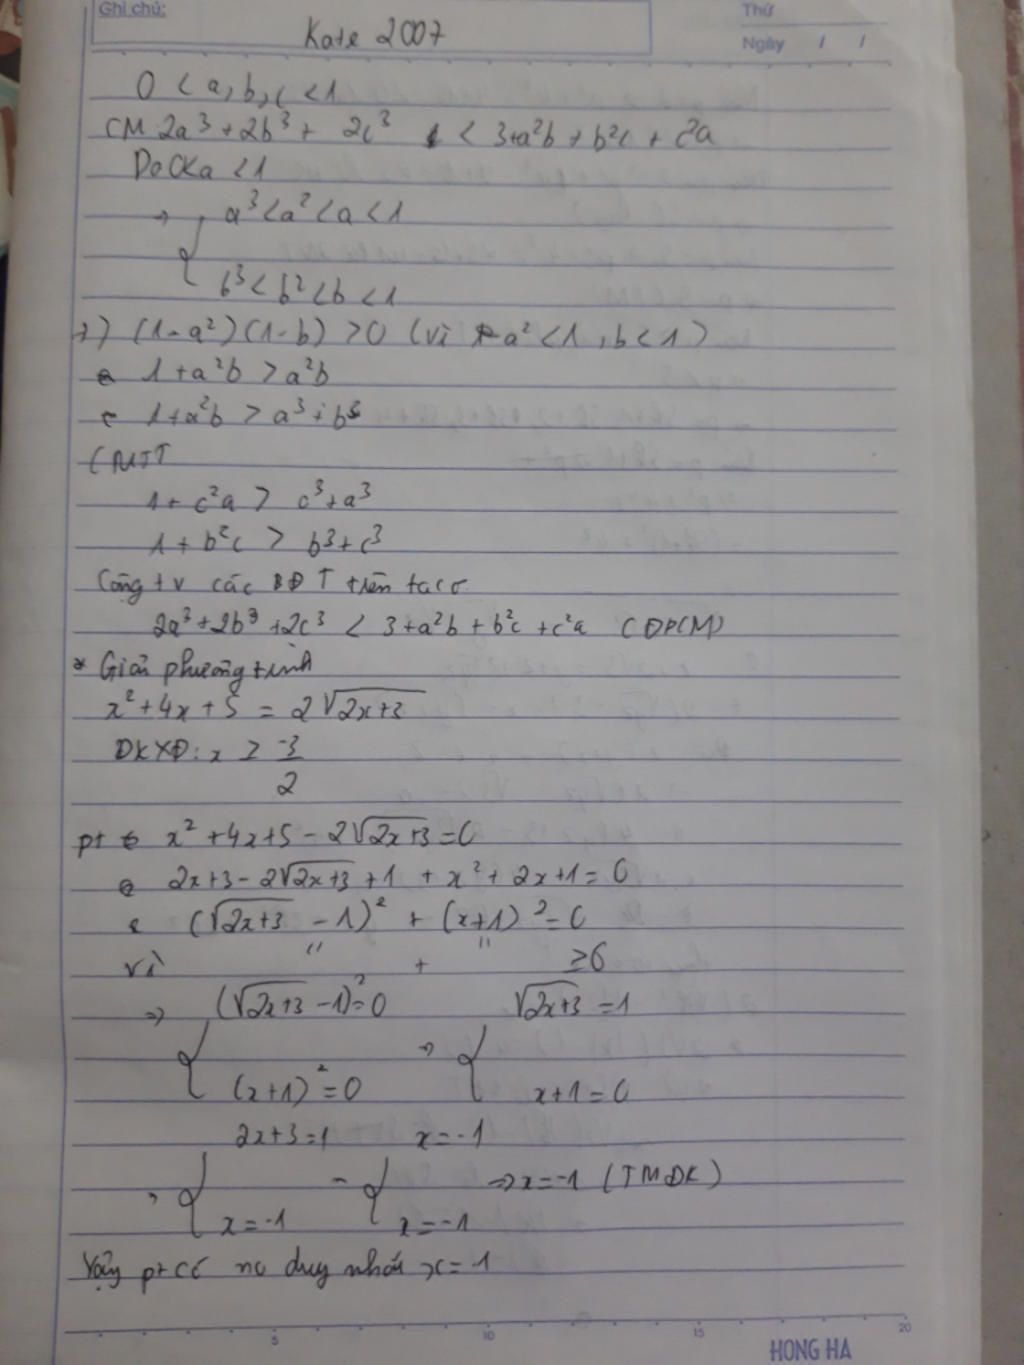 Ghi chú:
Thứ
Ngày / /
Kate 2007
0 < a, b, c < 1
CM 2a³ + 2b³ + 2c³ < 3 + a²b + b²c + c²a
Do 0 < a < 1
→ { a³ < a² < a < 1
b³ < b² < b < 1
=> (1 - a²)(1 - b) > 0 (vì a² < 1, b < 1)
1 + a²b > a²b
1 + a²b > a³ + b³
CMTT
1 + c²a > c³ + a³
1 + b²c > b³ + c³
Cộng tv các BĐT trên ta có
2a³ + 2b³ + 2c³ < 3 + a²b + b²c + c²a (ĐPCM)
* Giải phương trình
x² + 4x + 5 = 2√(2x+3)
ĐKXĐ: x ≥ -3/2
pt x² + 4x + 5 - 2√(2x+3) = 0
2x+3 - 2√(2x+3) + 1 + x² + 2x + 1 = 0
(√(2x+3) - 1)² + (x+1)² = 0
vì " + " ≥ 0
=> { (√(2x+3) - 1)² = 0 √(2x+3) = 1
(x+1)² = 0 → { x+1 = 0
2x+3 = 1 x = -1
{ x = -1 - { x = -1 => x = -1 (TMĐK)
Vậy pt có no duy nhất x = -1
5 10 15 20
HONG HA